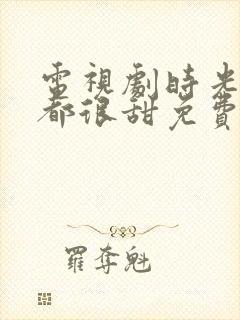 電視劇時光
都很甜免費
羅奪魁